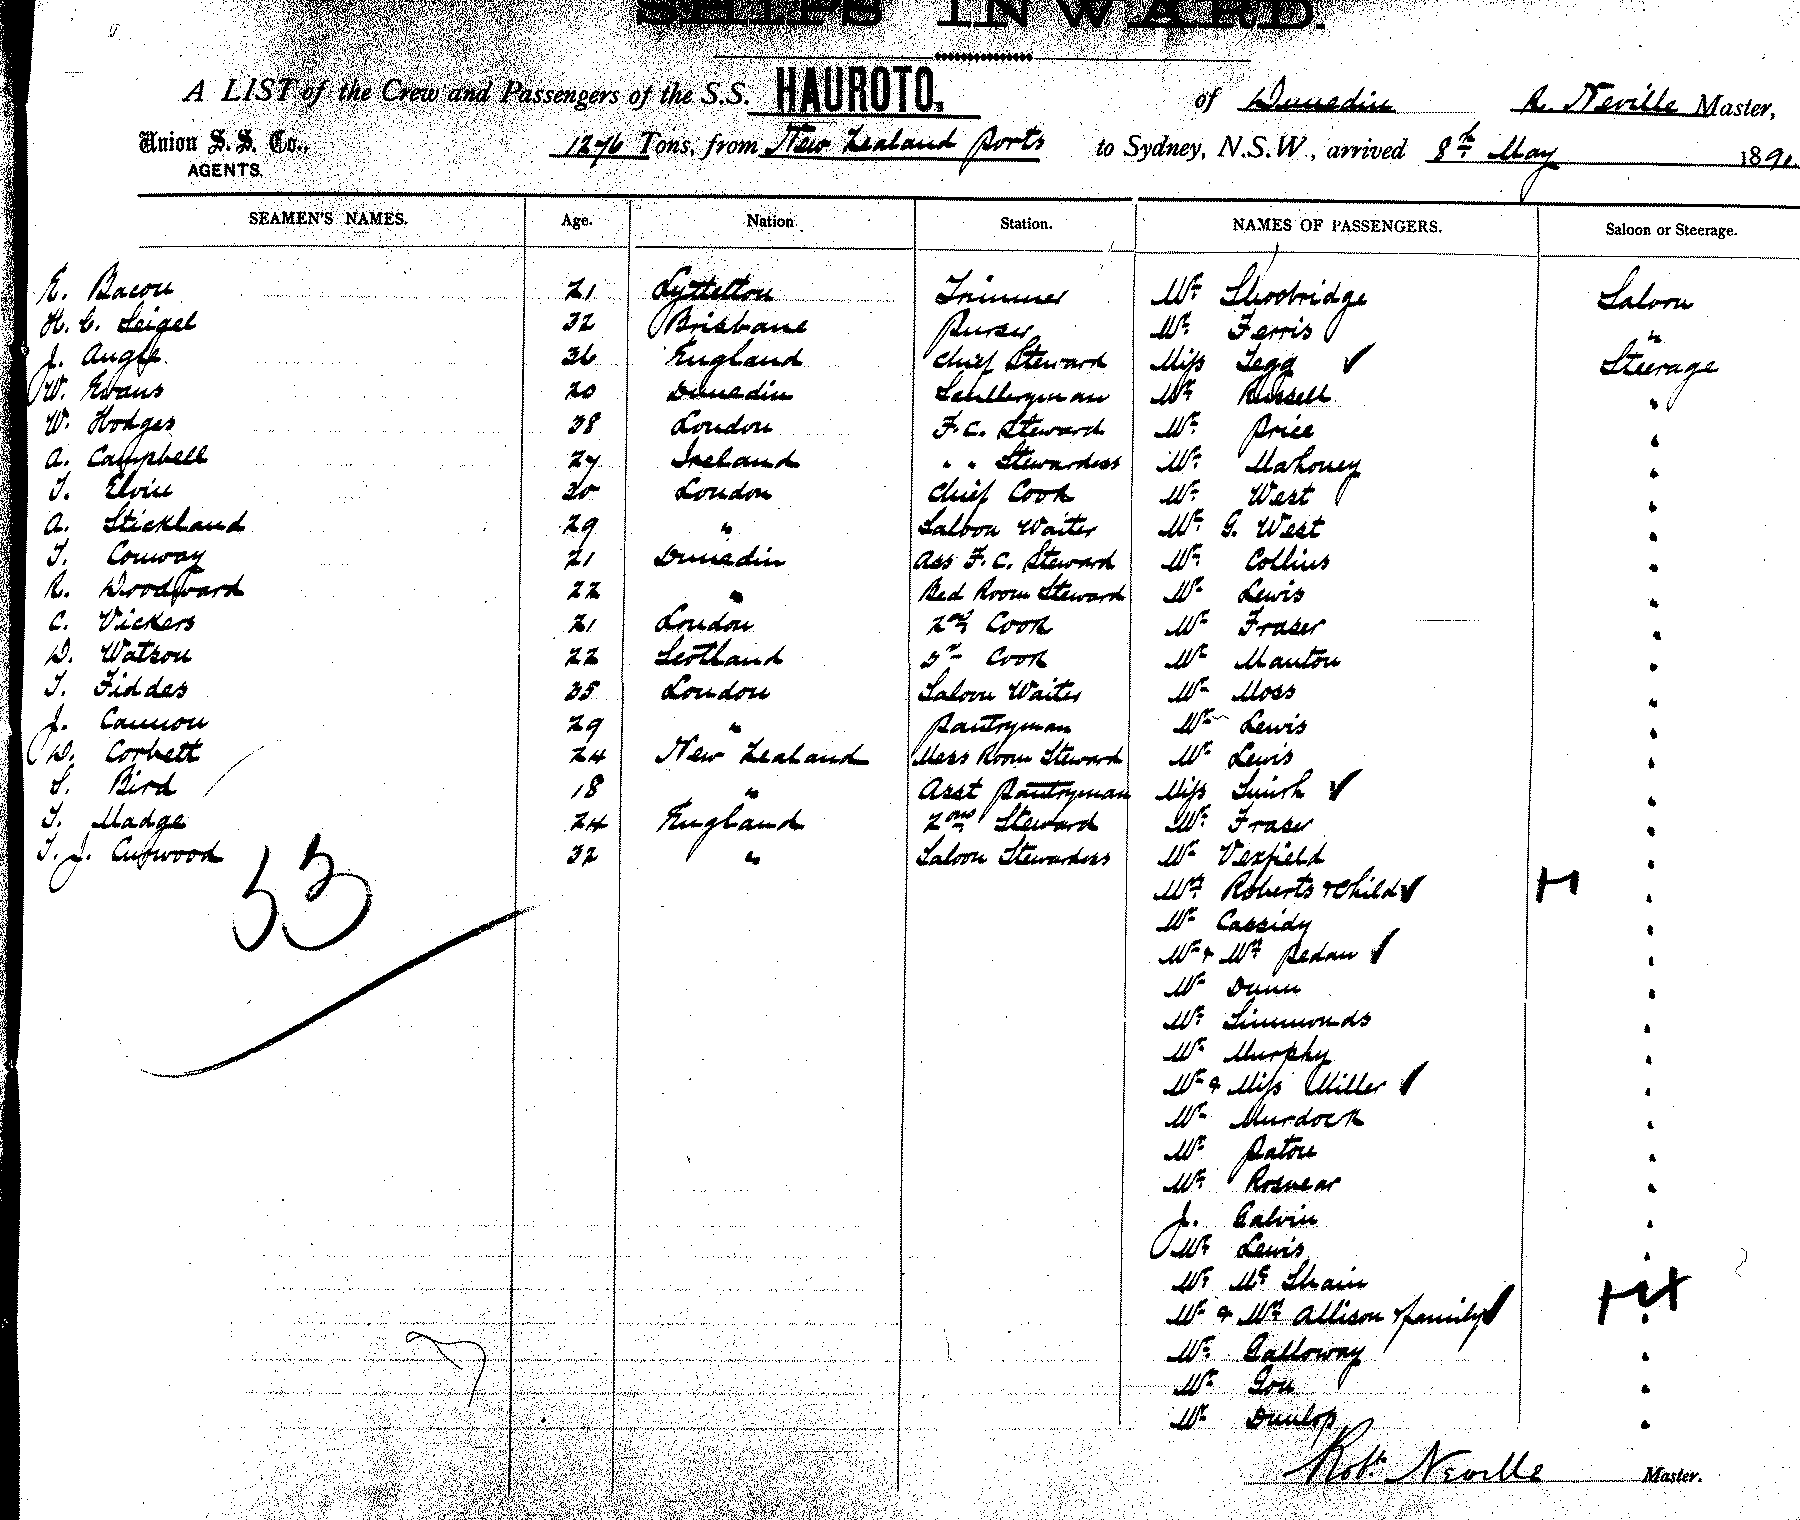 SHIPS INWARD.
A LIST of the Crew and Passengers of the S.S. HAUROTO, of Dunedin R. Neville Master,
Union S. S. Co., AGENTS. 1276 Tons, from New Zealand Ports to Sydney, N.S.W., arrived 8th May 1890
SEAMEN'S NAMES. Age. Nation Station. NAMES OF PASSENGERS. Saloon or Steerage.
E. Bacon 21 Lyttelton Trimmer Mr Shoobridge Saloon
H. C. Seigel 32 Brisbane Purser Mr Ferris "
J. Angle 36 England Chief Steward Miss Tegg ✓ Steerage
W. Evans 20 Dunedin Sculleryman Mr Russell "
W. Hodges 38 London F. C. Steward Mr Price "
A. Campbell 27 Ireland " " Stewardess Mr Mahoney "
T. Elvin 30 London Chief Cook Mr West "
A. Stickland 29 " Saloon Waiter Mr G. West "
T. Conway 21 Dunedin Ass F. C. Steward Mr Collins "
R. Woodward 22 " Bed Room Steward Mr Lewis "
C. Vickers 21 London 2nd Cook Mr Fraser "
D. Watson 22 Scotland 3rd Cook Mr Manton "
T. Fiddes 35 London Saloon Waiter Mr Moss "
J. Cannon 29 " Pantryman Mr Lewis "
D. Corbett 24 New Zealand Mess Room Steward Mr Lewis "
S. Bird 18 " Asst Pantryman Miss Smith ✓ "
T. Madge 24 England 2nd Steward Mr Fraser "
T. J. Curwood 32 " Saloon Stewardess Mr Vexfield "
53 Mrs Roberts & Child ✓ "
Mr Cassidy "
Mr & Mrs Pedan ✓ "
Mr Dunn "
Mr Simmonds "
Mr Murphy "
Mr & Miss Miller ✓ "
Mr Murdock "
Mr Paton "
Mr Rosvear "
J. Galvin "
Mr Lewis "
Mr Mc Shain "
Mr & Mrs Allison & family ✓ "
Mr Galloway "
Mr Gou "
Mr Dunlop "
Robt Neville Master.